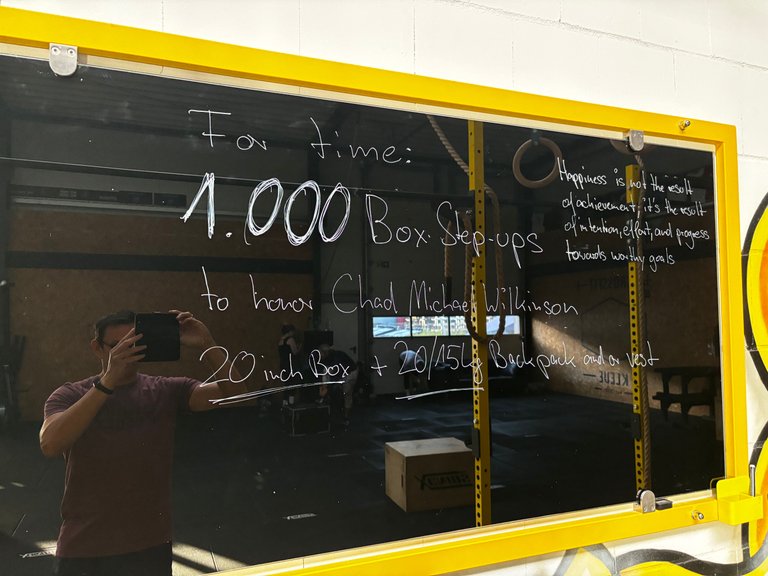 For time:
1.000 Box Step-ups
to honor Chad Michael Wilkinson
20 inch Box + 20/15kg Backpack and or vest
Happiness is not the result
of achievement it's the result
of intention, effort, and progress
towards worthy goals
KLEVE